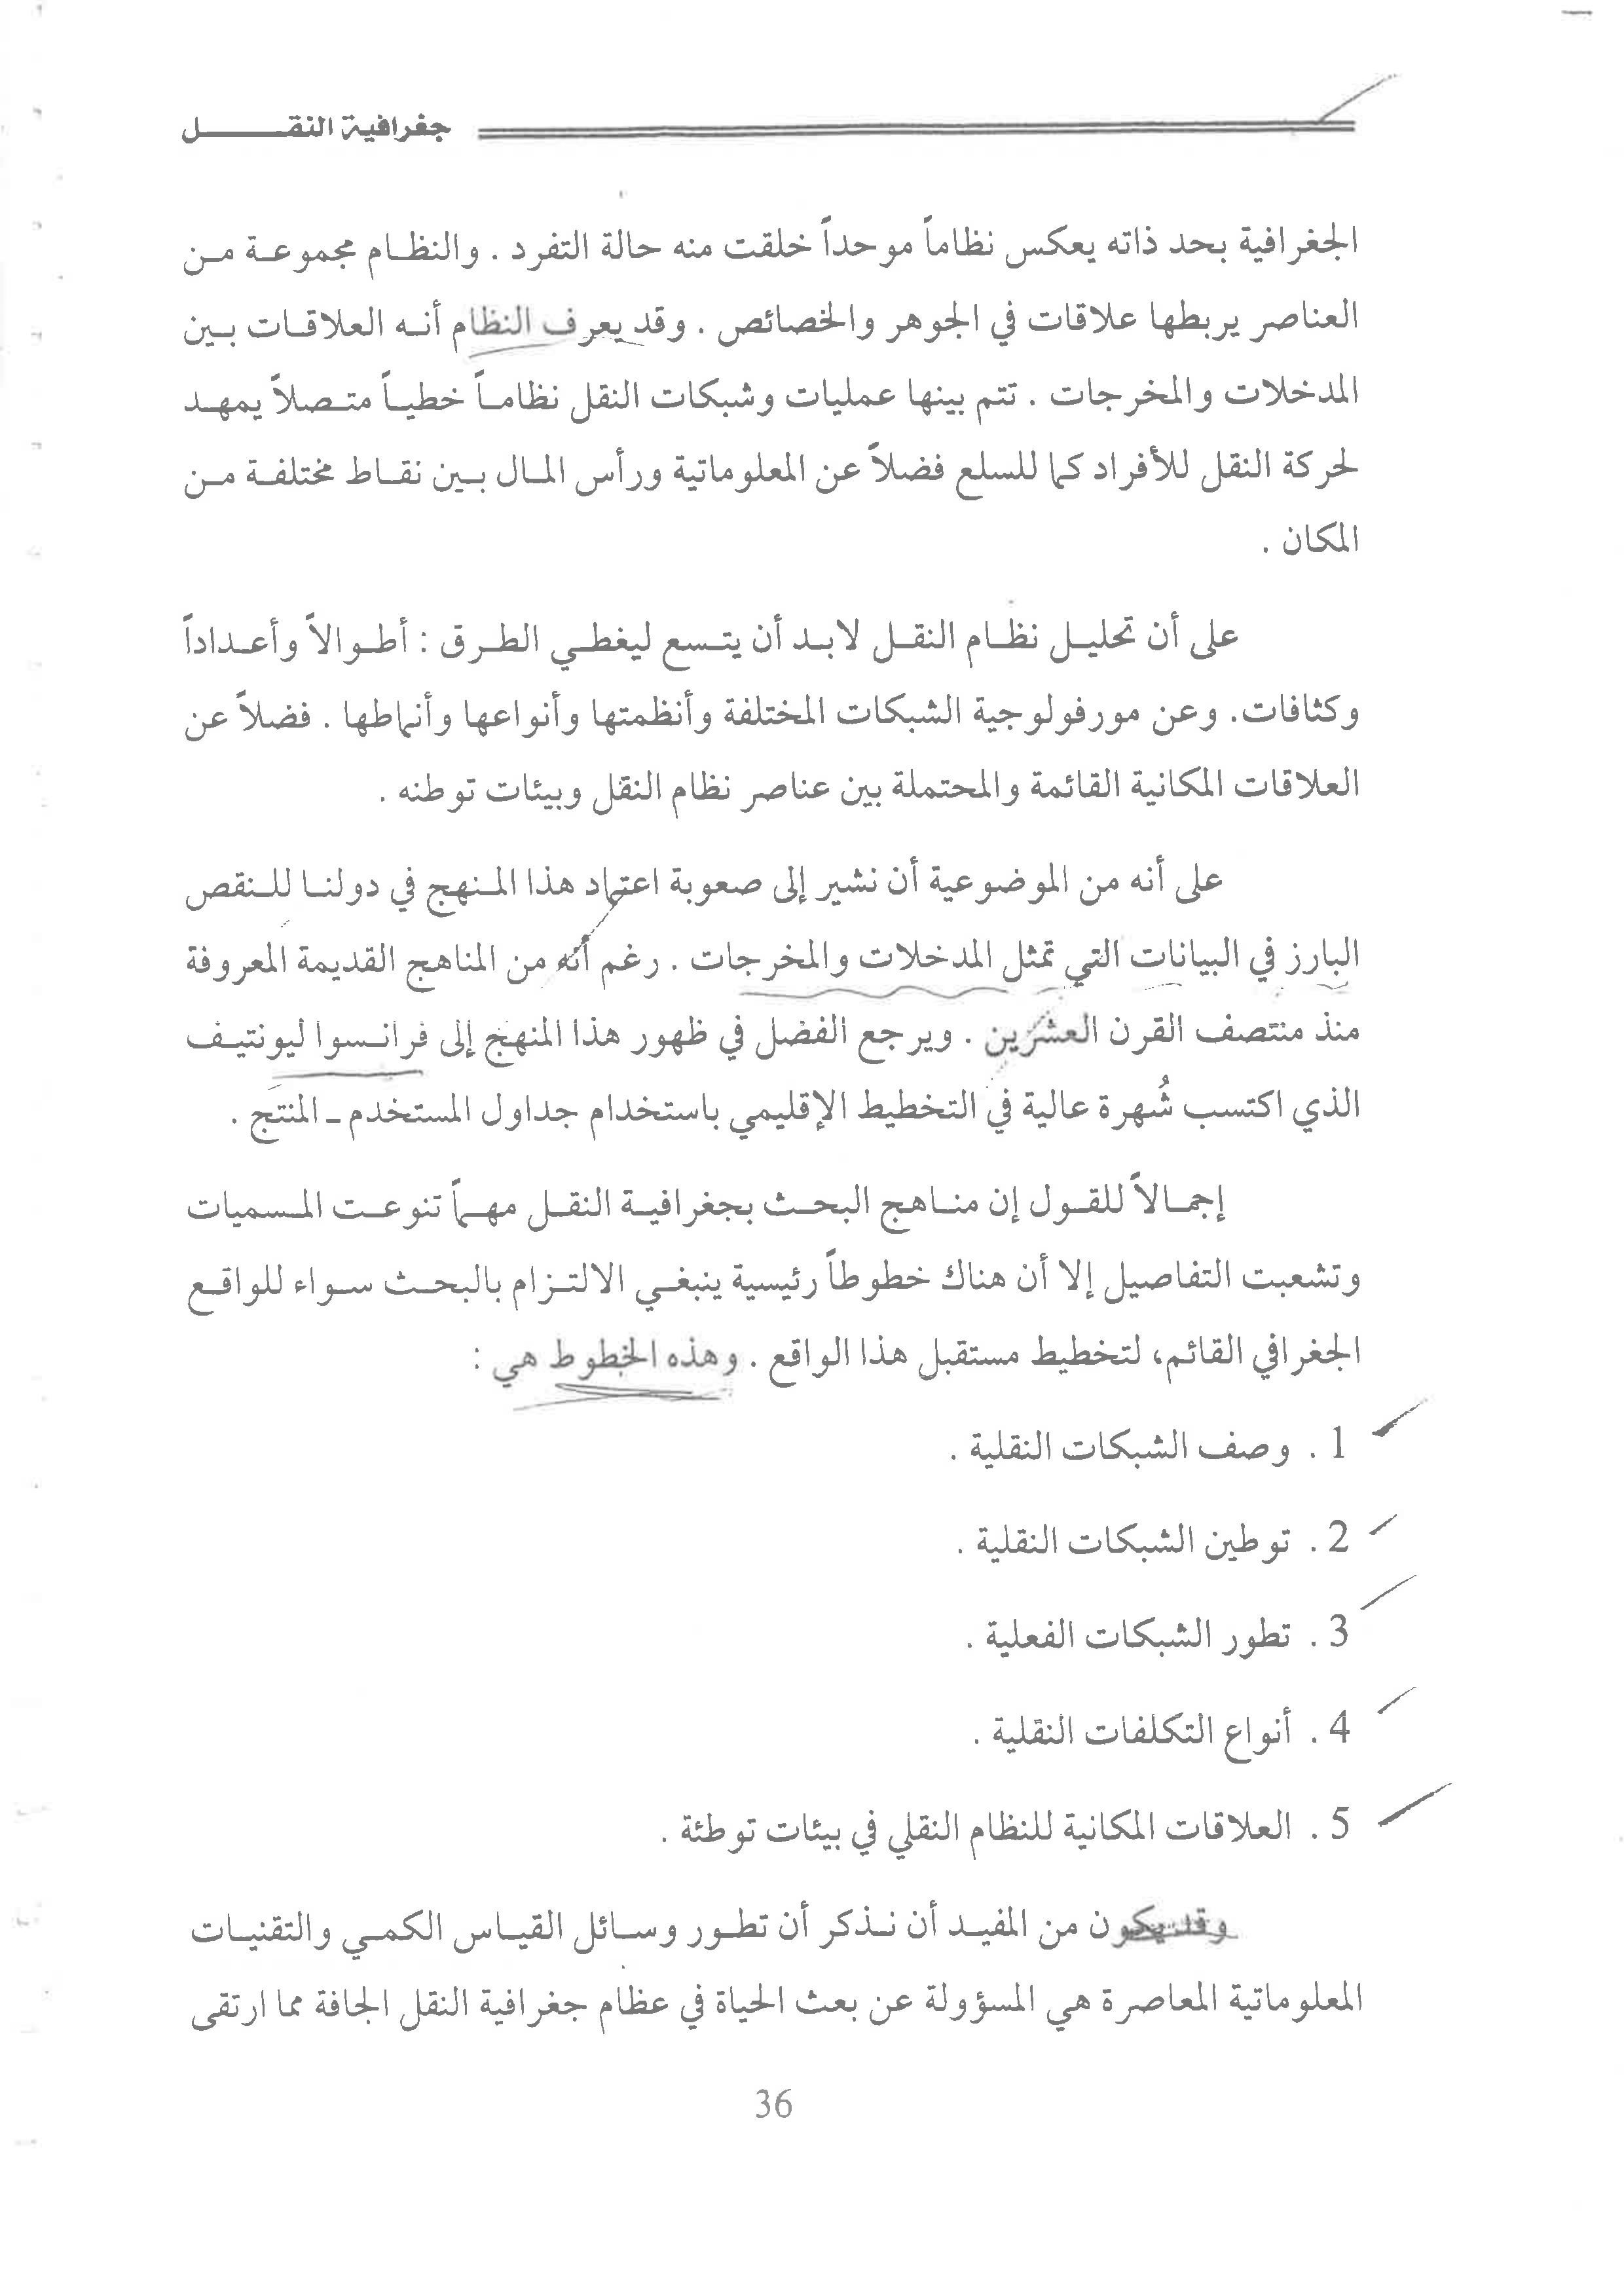 جغرافية النقل
الجغرافية بحد ذاته يعكس نظاماً موحداً خلقت منه حالة التفرد . والنظام مجموعة من
العناصر يربطها علاقات في الجوهر والخصائص . وقد يعرف النظام أنه العلاقات بين
المدخلات والمخرجات . تتم بينها عمليات وشبكات النقل نظاماً خطياً متصلاً يمهد
لحركة النقل للأفراد كما للسلع فضلاً عن المعلوماتية ورأس المال بين نقاط مختلفة من
المكان .
على أن تحليل نظام النقل لابد أن يتسع ليغطي الطرق : أطوالاً وأعداداً
وكثافات. وعن مورفولوجية الشبكات المختلفة وأنظمتها وأنواعها وأنماطها . فضلاً عن
العلاقات المكانية القائمة والمحتملة بين عناصر نظام النقل وبيئات توطنه .
على أنه من الموضوعية أن نشير إلى صعوبة اعتماد هذا المنهج في دولنا للنقص
البارز في البيانات التي تمثل المدخلات والمخرجات . رغم أنه من المناهج القديمة المعروفة
منذ منتصف القرن العشرين . ويرجع الفضل في ظهور هذا المنهج إلى فرانسوا ليونتيف
الذي اكتسب شُهرة عالية في التخطيط الإقليمي باستخدام جداول المستخدم ـ المنتج .
إجمالاً للقول إن مناهج البحث بجغرافية النقل مهماً تنوعت المسميات
وتشعبت التفاصيل إلا أن هناك خطوطاً رئيسية ينبغي الالتزام بالبحث سواء للواقع
الجغرافي القائم، لتخطيط مستقبل هذا الواقع . وهذه الخطوط هي :
1 . وصف الشبكات النقلية .
2 . توطين الشبكات النقلية .
3 . تطور الشبكات الفعلية .
4 . أنواع التكلفات النقلية .
5 . العلاقات المكانية للنظام النقلي في بيئات توطئة .
وقد يكون من المفيد أن نذكر أن تطور وسائل القياس الكمي والتقنيات
المعلوماتية المعاصرة هي المسؤولة عن بعث الحياة في عظام جغرافية النقل الجافة مما ارتقى
36